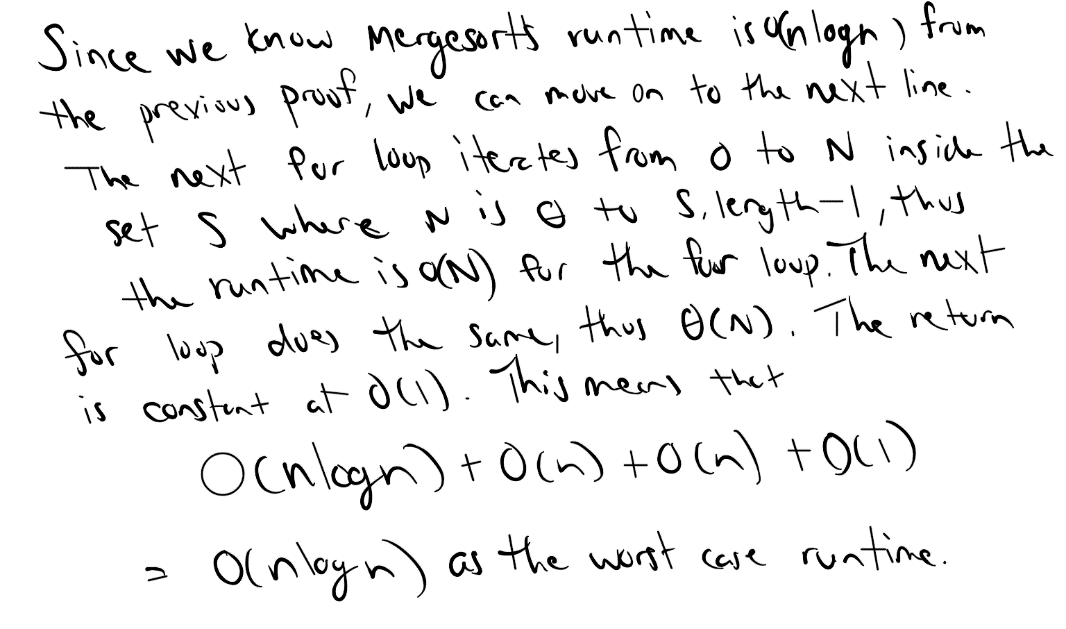 Since we know Mergesort's runtime is O(nlogn) from
the previous proof, we can move on to the next line.
The next for loop iterates from 0 to N inside the
set S where N is 0 to S.length-1, thus
the runtime is O(N) for the for loop. The next
for loop does the same, thus θ(N). The return
is constant at O(1). This means that
O(nlogn) + O(n) + O(n) + O(1)
= O(nlogn) as the worst case runtime.